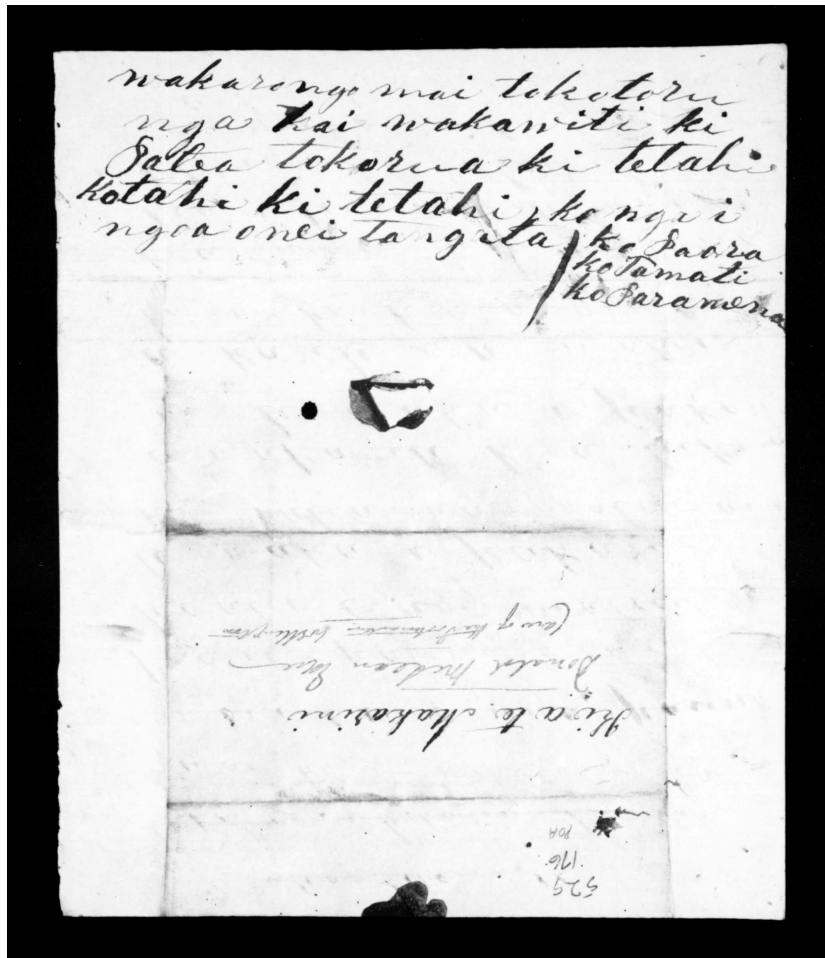 wakarongo mai tokotoru
nga kai wakawiti ki
Patea tokorua ki tetahi
Kotahi ki tetahi, ko nga i
ngoa onei tangata / ko Paora
ko Tamati
ko Paramena
Kia te Makarini
Donald McLean Esqre
Care of the Postmaster Wellington
529
176